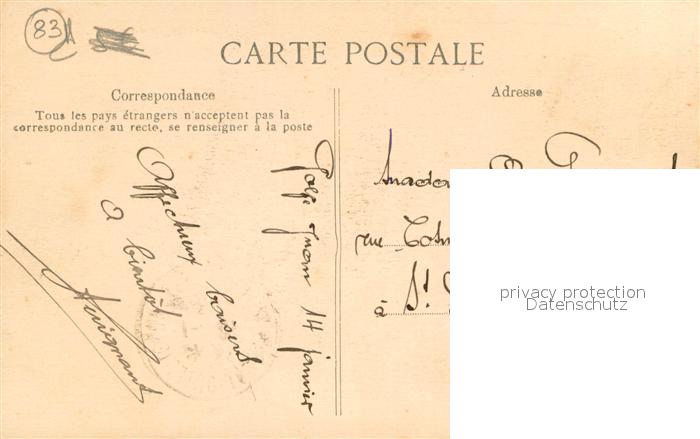 83
CARTE POSTALE
Correspondance
Tous les pays étrangers n'acceptent pas la
correspondance au recte, se renseigner à la poste
Adresse
Golfe Juan 14 janvier
Affectueux baisers
a bientôt
rue
à St
privacy protection
Datenschutz